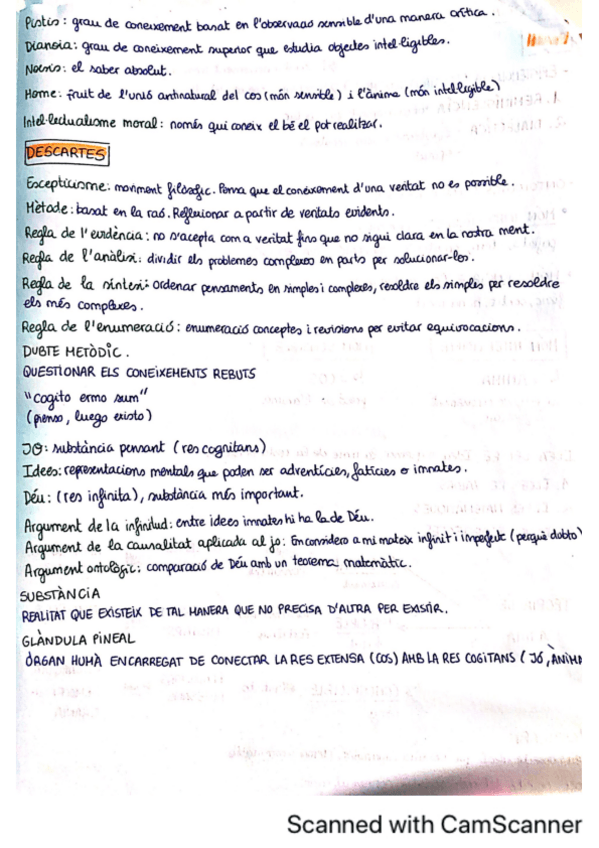 Pistis: grau de coneixement basat en l'observació sensible d'una manera crítica.
Dianoia: grau de coneixement superior que estudia objectes intel·ligibles.
Noesis: el saber absolut.
Home: fruit de l'unió antinatural del cos (món sensible) i l'ànima (món intel·ligible)
Intel·lectualisme moral: només qui coneix el bé el pot realitzar.
DESCARTES
Escepticisme: moviment filosòfic. Pensa que el coneixement d'una veritat no es possible.
Mètode: basat en la raó. Reflexionar a partir de veritats evidents.
Regla de l'evidència: no s'acepta com a veritat fins que no sigui clara en la nostra ment.
Regla de l'anàlisi: dividir els problemes complexos en parts per solucionar-los.
Regla de la síntesi: Ordenar pensaments en simples i complexes, resoldre els simples per resoldre
els més complexes.
Regla de l'enumeració: enumeració conceptes i revisions per evitar equivocacions.
DUBTE METÒDIC.
QUESTIONAR ELS CONEIXEMENTS REBUTS
"Cogito ermo sum"
(pienso, luego existo)
JO: substància pensant (res cognitans)
Idees: representacions mentals que poden ser adventícies, fatícies o innates.
Déu: (res infinita), substància més important.
Argument de la infinitud: entre idees innates hi ha la de Déu.
Argument de la causalitat aplicada al jo: Em considero a mi mateix infinit i imperfecte (perquè dubto)
Argument ontològic: comparació de Déu amb un teorema matemàtic.
SUBSTÀNCIA
REALITAT QUE EXISTEIX DE TAL MANERA QUE NO PRECISA D'ALTRA PER EXISTIR.
GLÀNDULA PINEAL
ÒRGAN HUMÀ ENCARREGAT DE CONECTAR LA RES EXTENSA (COS) AMB LA RES COGITANS (JO, ÀNIMA
Scanned with CamScanner